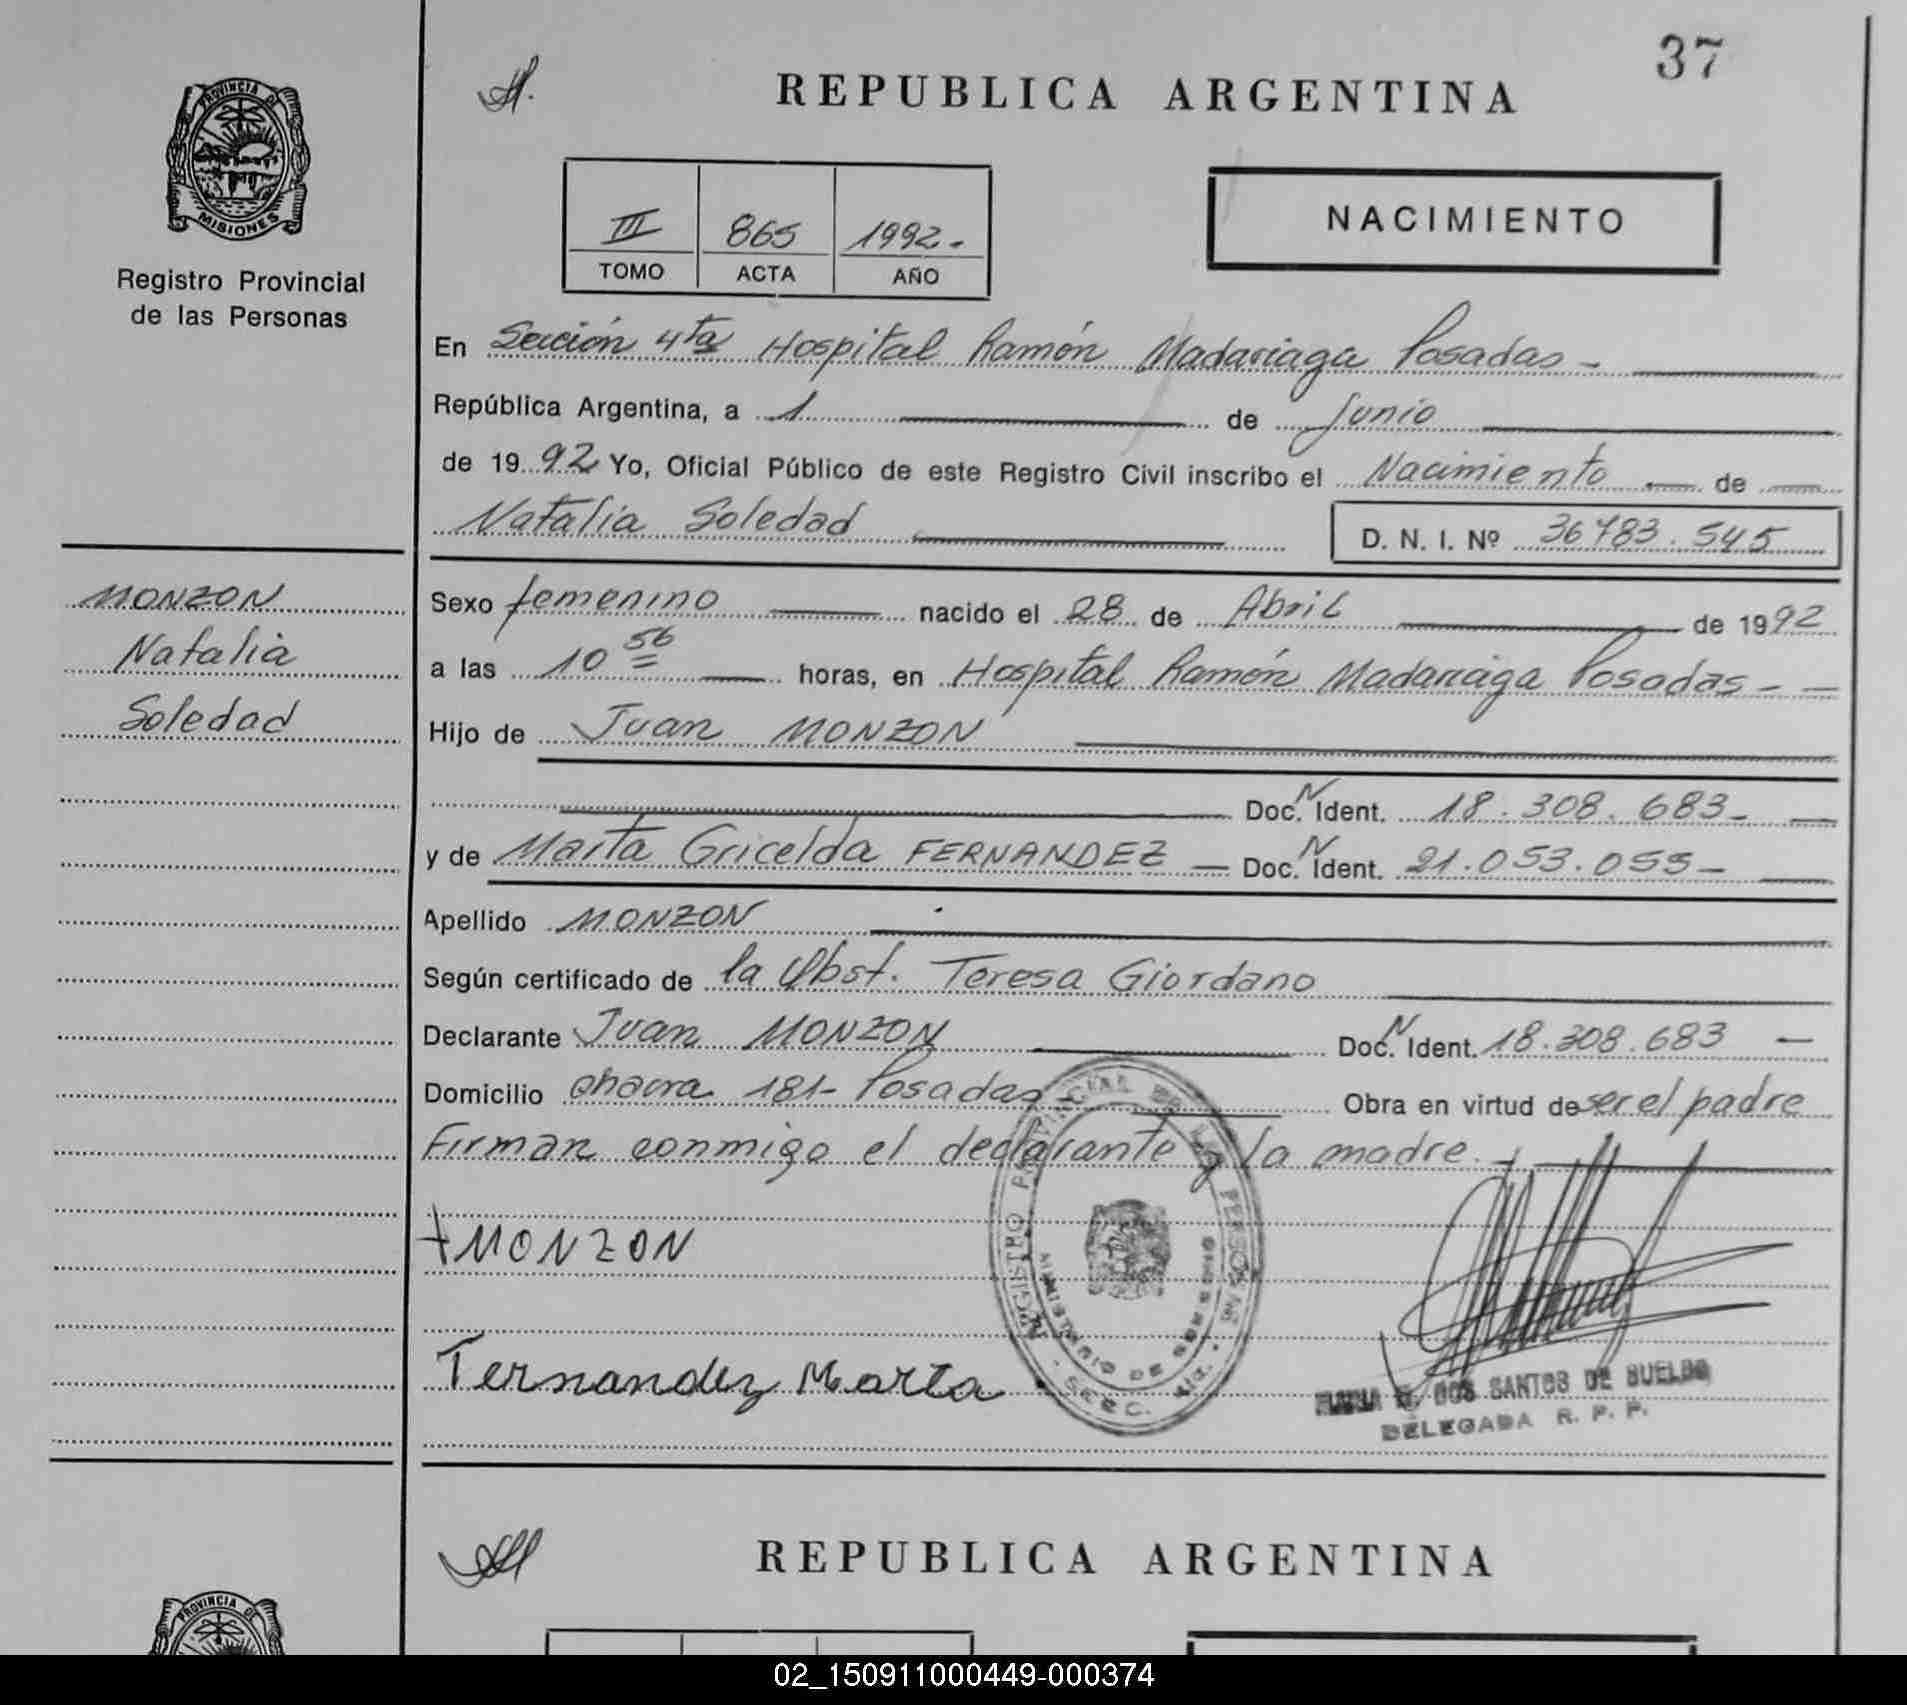 37
REPUBLICA ARGENTINA
PROVINCIA DE
MISIONES
Registro Provincial
de las Personas
III 865 1992.-
TOMO ACTA AÑO
NACIMIENTO
En Sección 4ta Hospital Ramón Madariaga Posadas -
República Argentina, a 1 de Junio
de 1992 Yo, Oficial Público de este Registro Civil inscribo el Nacimiento de
Natalia Soledad D. N. I. Nº 36783.545
MONZON
Natalia
Soledad
Sexo femenino nacido el 28 de Abril de 1992
a las 10 56 horas, en Hospital Ramón Madariaga Posadas - -
Hijo de Juan MONZON
Doc. N Ident. 18.308.683-
y de Marta Gricelda FERNANDEZ - Doc. N Ident. 21.053.055-
Apellido MONZON
Según certificado de la Obst. Teresa Giordano
Declarante Juan MONZON Doc. N Ident. 18.308.683 -
Domicilio chacra 181- Posadas Obra en virtud de ser el padre
Firman conmigo el declarante y la madre.-
MONZON
Fernandez Marta
REGISTRO PROVINCIAL DE LAS PERSONAS
MINISTERIO DE GOBIERNO
DOS SANTOS DE
DELEGADA R. P. P.
REPUBLICA ARGENTINA
PROVINCIA DE
02_150911000449-000374